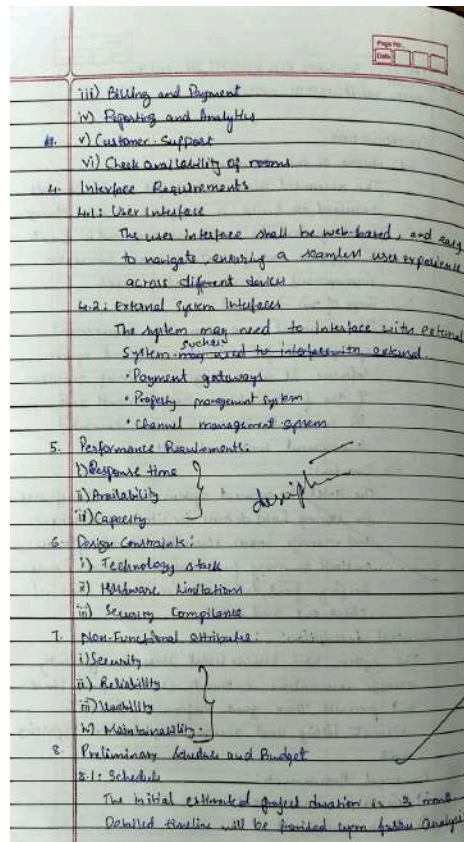 Page No.
Date
iii) Billing and Payment
iv) Reporting and Analytics
v) Customer Support
vi) Check availability of rooms
4. Interface Requirements
4.1: User Interface
The user interface shall be web-based, and easy
to navigate, ensuring a seamless user experience
across different devices
4.2: External System Interfaces
The system may need to interface with external
System such as may need to interface with external.
• Payment gateways
• Property management system
• Channel management system
5. Performance Requirements:
i) Response time
ii) Availability
iii) Capacity
description
6. Design Constraints:
i) Technology stack
ii) Hardware Limitations
iii) Security Compliance
7. Non-Functional attributes:
i) Security
ii) Reliability
iii) Usability
iv) Maintainability.
8. Preliminary Schedule and Budget
8.1: Schedule
The initial estimated project duration is 3 month
Detailed timeline will be provided upon further Analysis